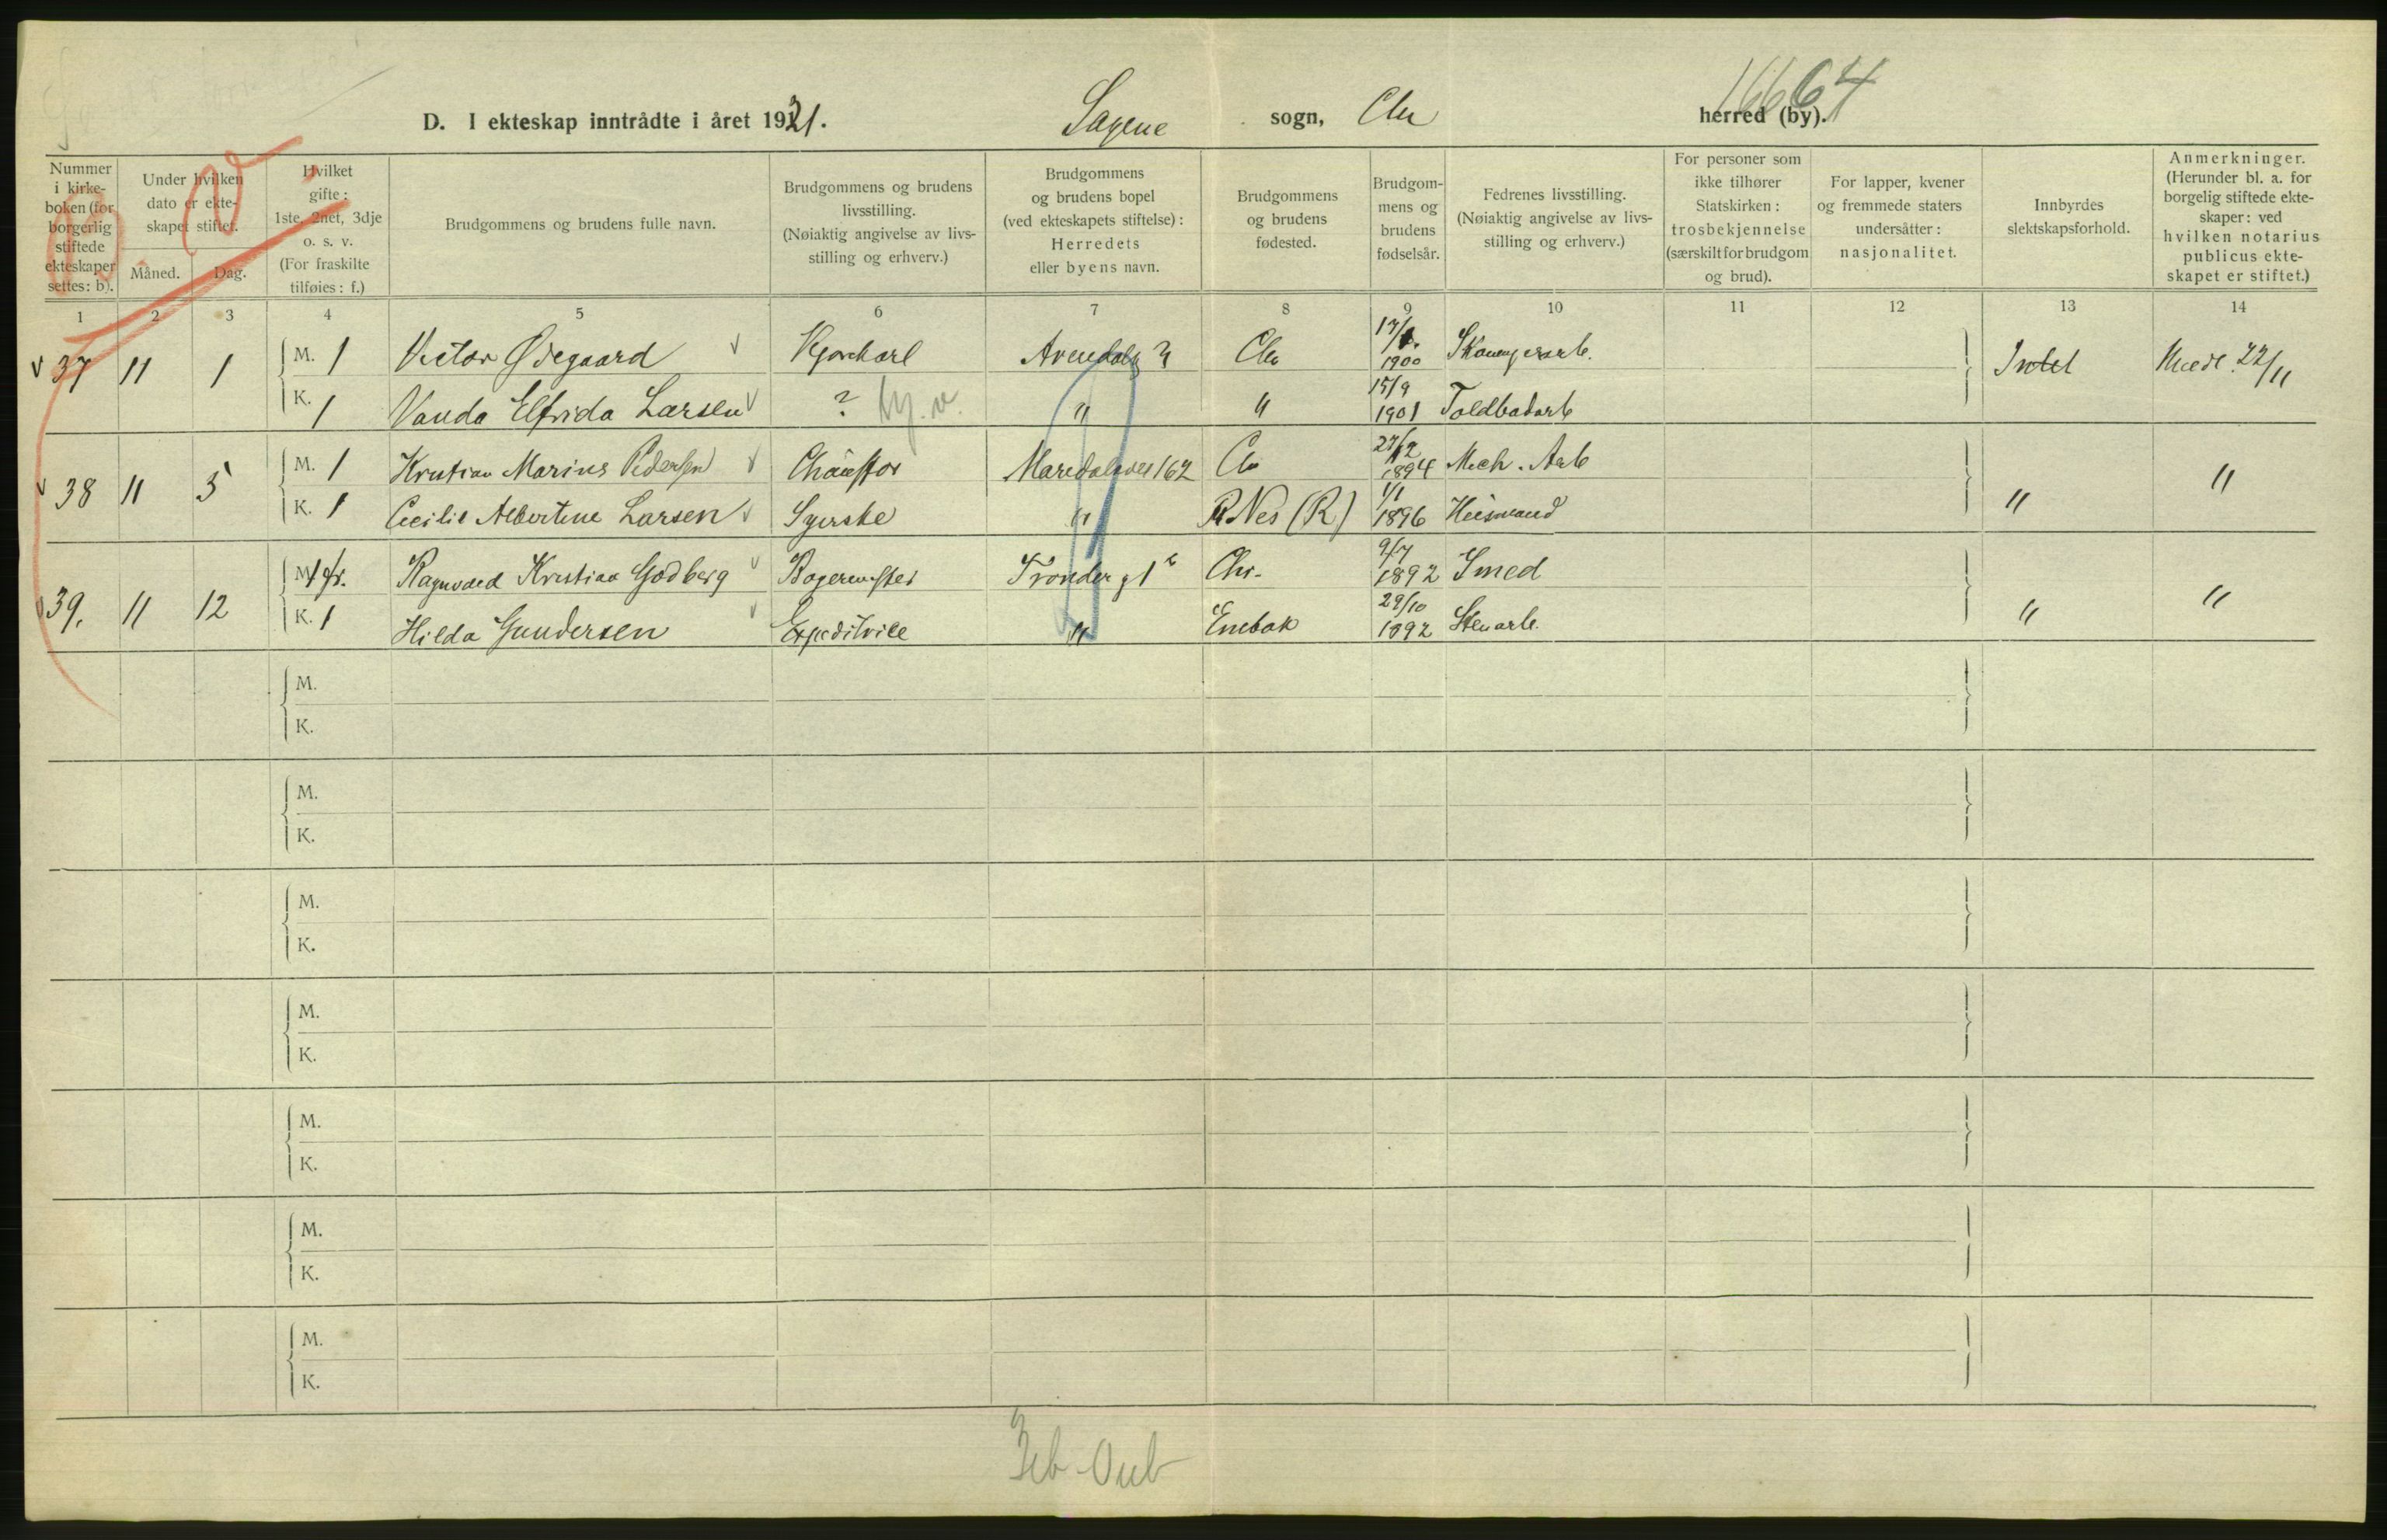 D. I ekteskap inntrådte i året 1921. Sagene sogn, Chr herred (by). 16664
Nummer i kirkeboken (for borgerlig stiftede ekteskaper settes: b).
Under hvilken dato er ekteskapet stiftet.
Måned. Dag.
Hvilket gifte: 1ste, 2net, 3dje o. s. v. (For fraskilte tilføies: f.)
Brudgommens og brudens fulle navn.
Brudgommens og brudens livsstilling. (Nøiaktig angivelse av livsstilling og erhverv.)
Brudgommens og brudens bopel (ved ekteskapets stiftelse): Herredets eller byens navn.
Brudgommens og brudens fødested.
Brudgommens og brudens fødselsår.
Fedrenes livsstilling. (Nøiaktig angivelse av livsstilling og erhverv.)
For personer som ikke tilhører Statskirken: trosbekjennelse (særskilt for brudgom og brud).
For lapper, kvener og fremmede staters undersåtter: nasjonalitet.
Innbyrdes slektskapsforhold.
Anmerkninger. (Herunder bl. a. for borgelig stiftede ekteskaper: ved hvilken notarius publicus ekteskapet er stiftet.)
1 2 3 4 5 6 7 8 9 10 11 12 13 14
37 11 1 M. 1 Victor Ødegaard Arendalsg 3 Chr 1900 Intet 22/11
K. 1 Vanda Elfrida Larsen ? " " 15/9 1901 Toldbodarb
38 11 5 M. 1 Kristian Marius Pedersen Chauffør Maridalsvei 162 Chr 27/12 1894 Mech. Arb " "
K. 1 Cecilie Albertine Larsen Syerske " Nes (R) 1/1 1896 Husmand
39. 11 12 M. 1 fr. Ragnvald Kristian Godberg Bagermester Tronder g 1 Chr. 9/7 1892 Smed " "
K. 1 Hilda Gundersen Expeditrice " Enebak 29/10 1892 Stenarb.
M.
K.
M.
K.
M.
K.
M.
K.
M.
K.
M.
K.
M.
K.